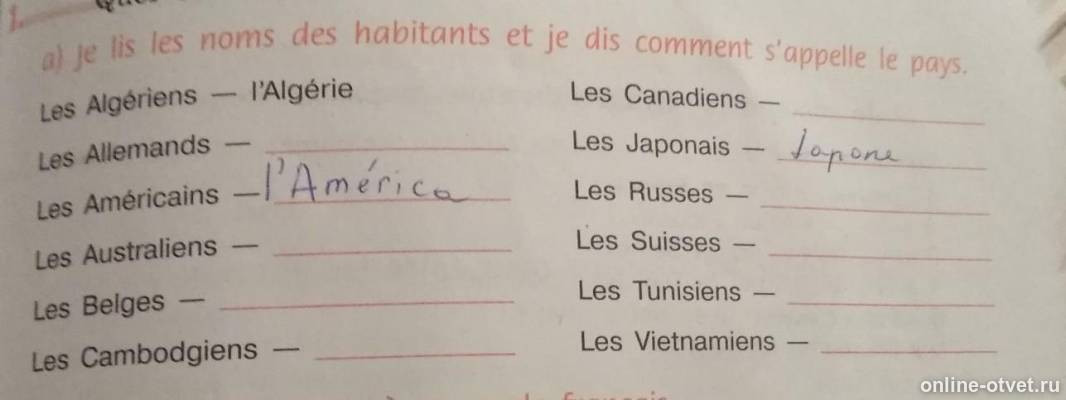 a) je lis les noms des habitants et je dis comment s'appelle le pays.
Les Algériens — l'Algérie
Les Allemands —
Les Américains — l'América
Les Australiens —
Les Belges —
Les Cambodgiens —
Les Canadiens —
Les Japonais — Japone
Les Russes —
Les Suisses —
Les Tunisiens —
Les Vietnamiens —
online-otvet.ru